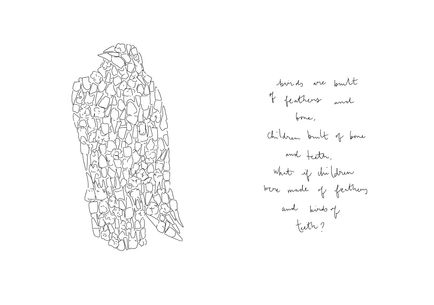 birds are built
of feathers and
bone,
children built of bone
and teeth.
what if children
were made of feathers
and birds of
teeth?